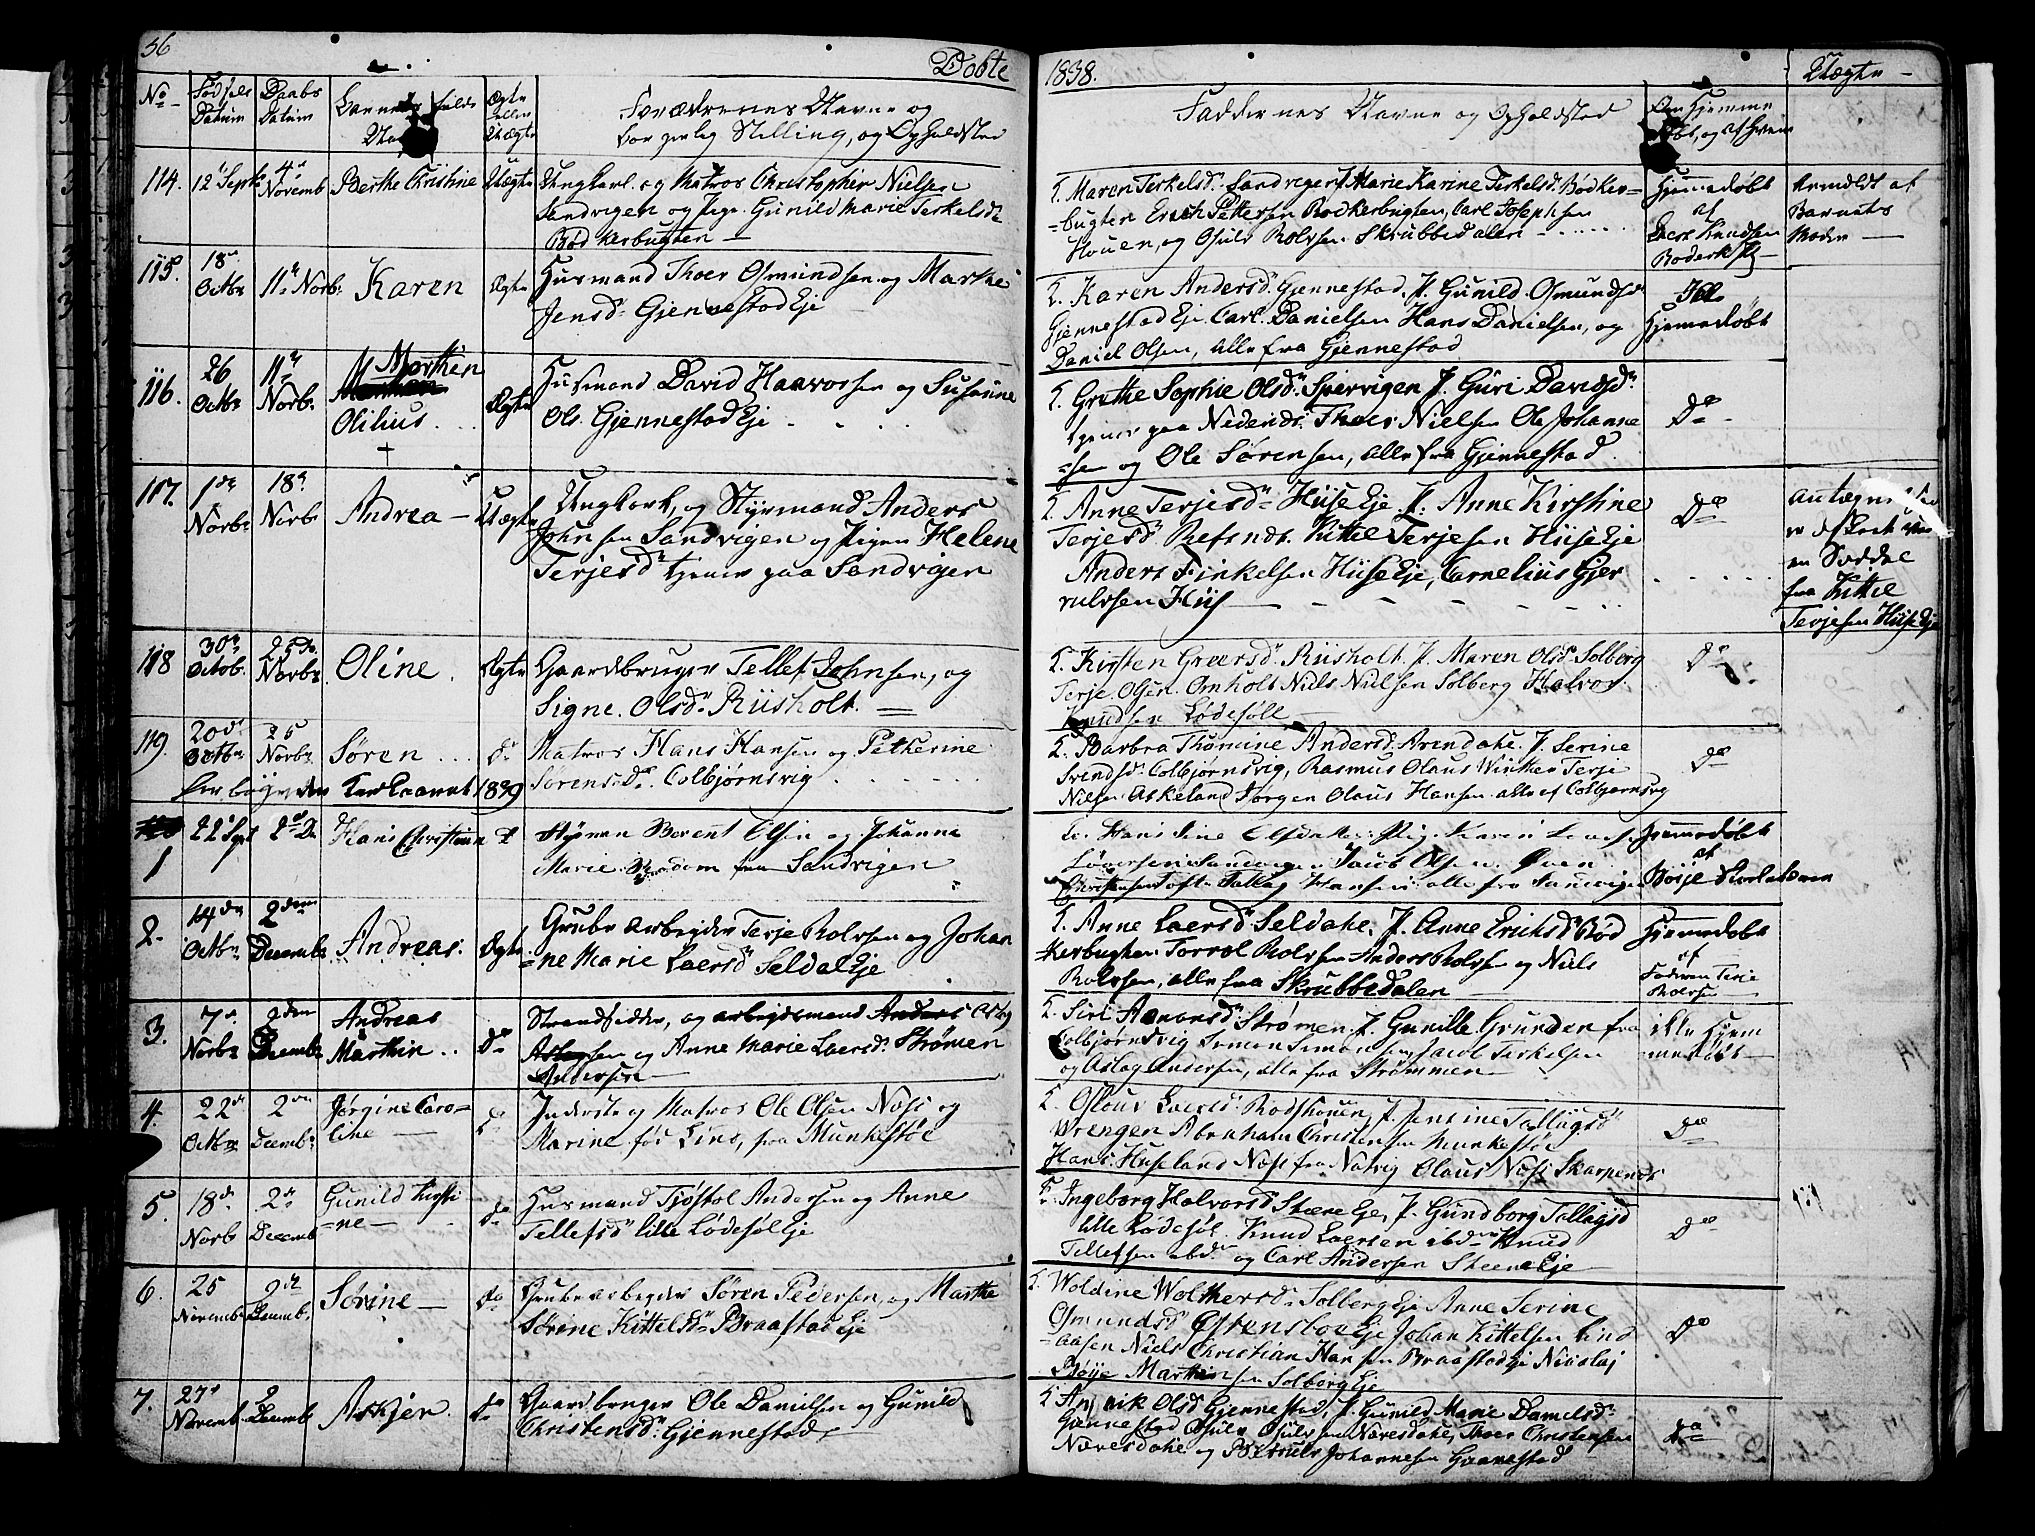 56
Døbte
1838.
Uægte
No
Fødsels Datum
Daabs Datum
Barnets fulde Navn
Ægte eller Uægte
Forældrenes Navne og
borgerlig Stilling, og Opholdsted
Faddernes Navne og Opholdsted
Om Hjemme
døbt, og af hvem
114. 12 Septb 4de Novemb Berthe Christine Uægte
Ungkarl og Matros Christopher Nielsen
Sandvigen og Pige Gunild Marie Terkelsd.
Bødkerbugten
Maren Terkelsd. Sandvigen J. Marie Karine Terkelsd. Bødker-
bugten Erich Pettersen Bødkerbugten, Carl Josephsen
Houen, og Osuls Rolvsen Skrubbedalen
Hjemmedøbt
af
Knudsen
Anmeldt af
Barnets
Moder
115. 18 Octbr 11te Novbr Karen Ægte
Husmand Thoer Osmundsen og Marthe
Jensd. Gjennestad Eje
Karen Andersd. Gjennestad, J. Gunild Osmundsd.
Gjennestad Eje Carl Danielsen Hans Danielsen, og
Daniel Olsen, alle fra Gjennestad
Hjemedøbt
116. 26 Octbr 11te Novbr Morthen
Olilius Ægte
Husmand David Haavorsen og Susanne
Ols. Gjennestad Eje
Grethe Sophie Olsd. Spervigen J. Guri Davidsd.
tjener paa Nedenes Thoer Nielsen Ole Johanne
sen og Ole Sørensen, alle fra Gjennestad
Do
117. 1de Novbr 18de Novbr Andrea Uægte
Ungkarl, og Styrmand Anders
Johnsen Sandvigen og Pigen Helene
Terjesd. tjener paa Sandvigen
Anne Terjesd. Huse Eje J. Anne Kirstine
Terjesd. Refsnes Kittel Terjesen Huse Eje
Anders Finkelsen Huse Eje, Cornelius Gjer
rulvsen Huss
Do
en Seddel
fra Kittel
Terjesen Huse Eje
118 30de Octob. 25de Novbr Oline Ægte
Gaardbruger Tellef Johnsen, og
Signe Olsd. Riisholt
Kirsten Greersd. Riisholt J. Maren Olsd. Solberg
Terje Olsen Omholt Niels Nielsen Solberg Halvor
Knudsen Lødesøll
Do
119. 20de Octbr 25 Novbr Søren do
Matros Hans Hansen og Petherine
Sørensd. Colbjørnsvig
Her begynder Kirkeaaret 1839
Barbra Thomine Andersd. Arendahl J. Serine
Svendsd. Colbjørnsvig, Rasmus Olaus Winther Terje
Nielsen Askeland Jørgen Olaus Hansen alle af Colbjørnsvig
Do
1 22 Spt 2de D Hans Christian
Styrman Berent Olsen og Johanne
Marie fra Sandvigen
Hans Olsdatter
Jacob Olsen
Christensen Toft Tallag Hansen alle fra Sandvigen
Hjemmedøbt
af
2. 14de Octbr 2den Decembr Andreas. Ægte
Grubearbejder Terje Rolvsen og Johan
ne Marie Laersd. Seldal Eje
Anne Laersd. Seldahl J. Anne Erichsd. Bød
kerbugten Torrol Rolvsen Anders Rolvsen og Niels
Rolvsen, alle fra Skrubbedalen
Hjemmedøbt
af
Faderen Terje
Rolvsen
3. 7de Novbr 2den Decembr Andreas
Marthin Do
Strandsidder, og arbejdsmand Anders Aslag
Aslagsen og Anne Marie Laersd. Strømen
Andersen
Siri Aanonsd. Strømen J. Gunille Grunden fra
Colbjørnsvig Simon Simonsen, Jacob Terkelsen
og Aslag Andersen, alle fra Strømmen
ikke Hjem
medøbt
4. 22de Octbr 2den Decembr Jørgine Caro-
line do
Inderste og Matros Ole Olsen Næss og
Marine fød Lind, fra Munkestøe
Oslour Laersd. Rodshouen, J. Jensine Tallagsd.
Vrengen Abraham Christensen Munkestøe
Hans Huseland Næss fra Natvig Olaus Næss Skarpenes
Do
5. 18de Novbr 2de Decemb Gunild Kirsti
ne do
Husmand Tjøstol Andersen og Anne
Tellefsd. lille Lødesøl Eje
Ingeborg Halvorsd. Steene Eje, J. Gundborg Tallagsd
lille Lødesøl. Knud Laersen ibdm Knud
Tellefsen ibdm og Carl Andersen Steene Eje
Do
6. 25 Novembr 2de Decembr Sørine do
Grubearbejder Søren Pedersen, og Marthe
Sørene Kittelsd. Braastad Eje
Woldine Wolthersd. Solberg Eje Anne Serine
Osmundsd. Østensboe Eje Johan Kittelsen Lind
aasen Niels Christian Hansen Braastad Eje Nicolaj
Bøije Marthinsen Solborg Eje
Do
7. 27de Novemb. 2 Decemb Askjer. do
Gaardbruger Ole Danielsen og Gunild
Christensd. Gjennestad
Olsd Gjennestad, J. Gunild Marie Danielsd.
Gjennestad Osuls Osulsen Næresdahl, Thoer Christensen
Næresdahl og Johannesen Gjennestad
Do